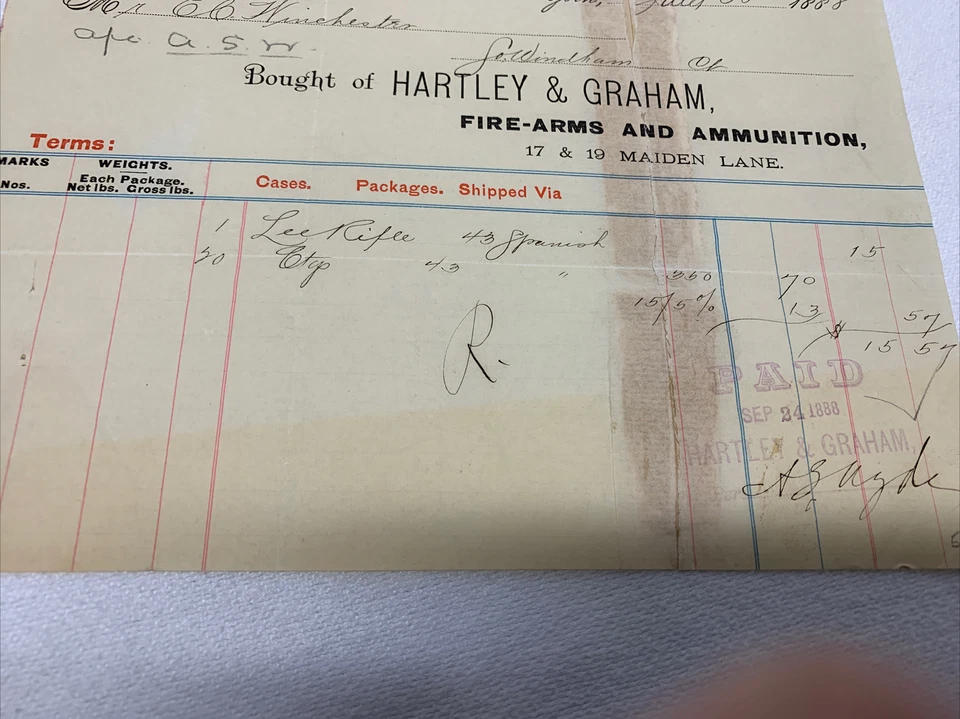 Mr E C Winchester 1888
a/c. A. S. W.
So. Windham Ct
Bought of HARTLEY & GRAHAM,
FIRE-ARMS AND AMMUNITION,
17 & 19 MAIDEN LANE.
Terms:
MARKS WEIGHTS.
Nos. Each Package. Net lbs. Gross lbs.
Cases. Packages. Shipped Via
1 Lee Rifle 43 Spanish 15
20 Ctgs 43 " 350 70
15/5% 13 57
$ 15 57
R.
PAID
SEP 24 1888
HARTLEY & GRAHAM,